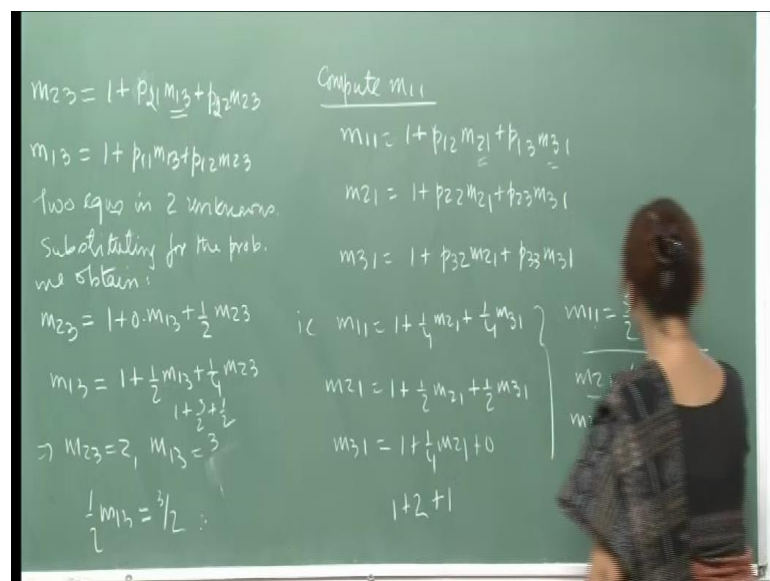 m23 = 1 + p21 m13 + p22 m23
m13 = 1 + p11 m13 + p12 m23
Two eqns in 2 unknowns.
Substituting for the prob.
we obtain:
m23 = 1 + 0·m13 + 1/2 m23
m13 = 1 + 1/2 m13 + 1/4 m23
1 + 3/2 + 1/2
⇒ m23 = 2, m13 = 3
1/2 m13 = 3/2 :
Compute m11
m11 = 1 + p12 m21 + p13 m31
m21 = 1 + p22 m21 + p23 m31
m31 = 1 + p32 m21 + p33 m31
ie m11 = 1 + 1/4 m21 + 1/4 m31
m21 = 1 + 1/2 m21 + 1/2 m31
m31 = 1 + 1/4 m21 + 0
1 + 2 + 1
m11 =
m21